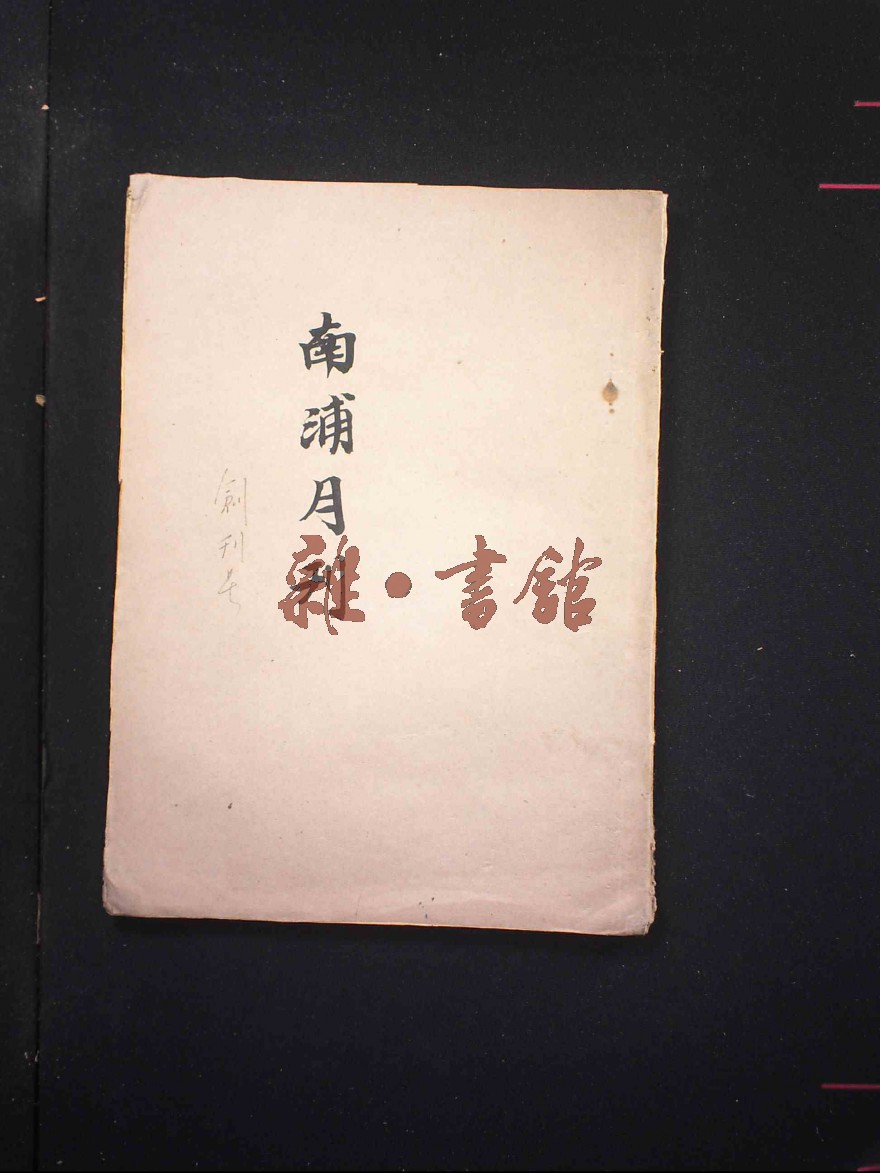 南浦月刊
創刊号
雜·書館